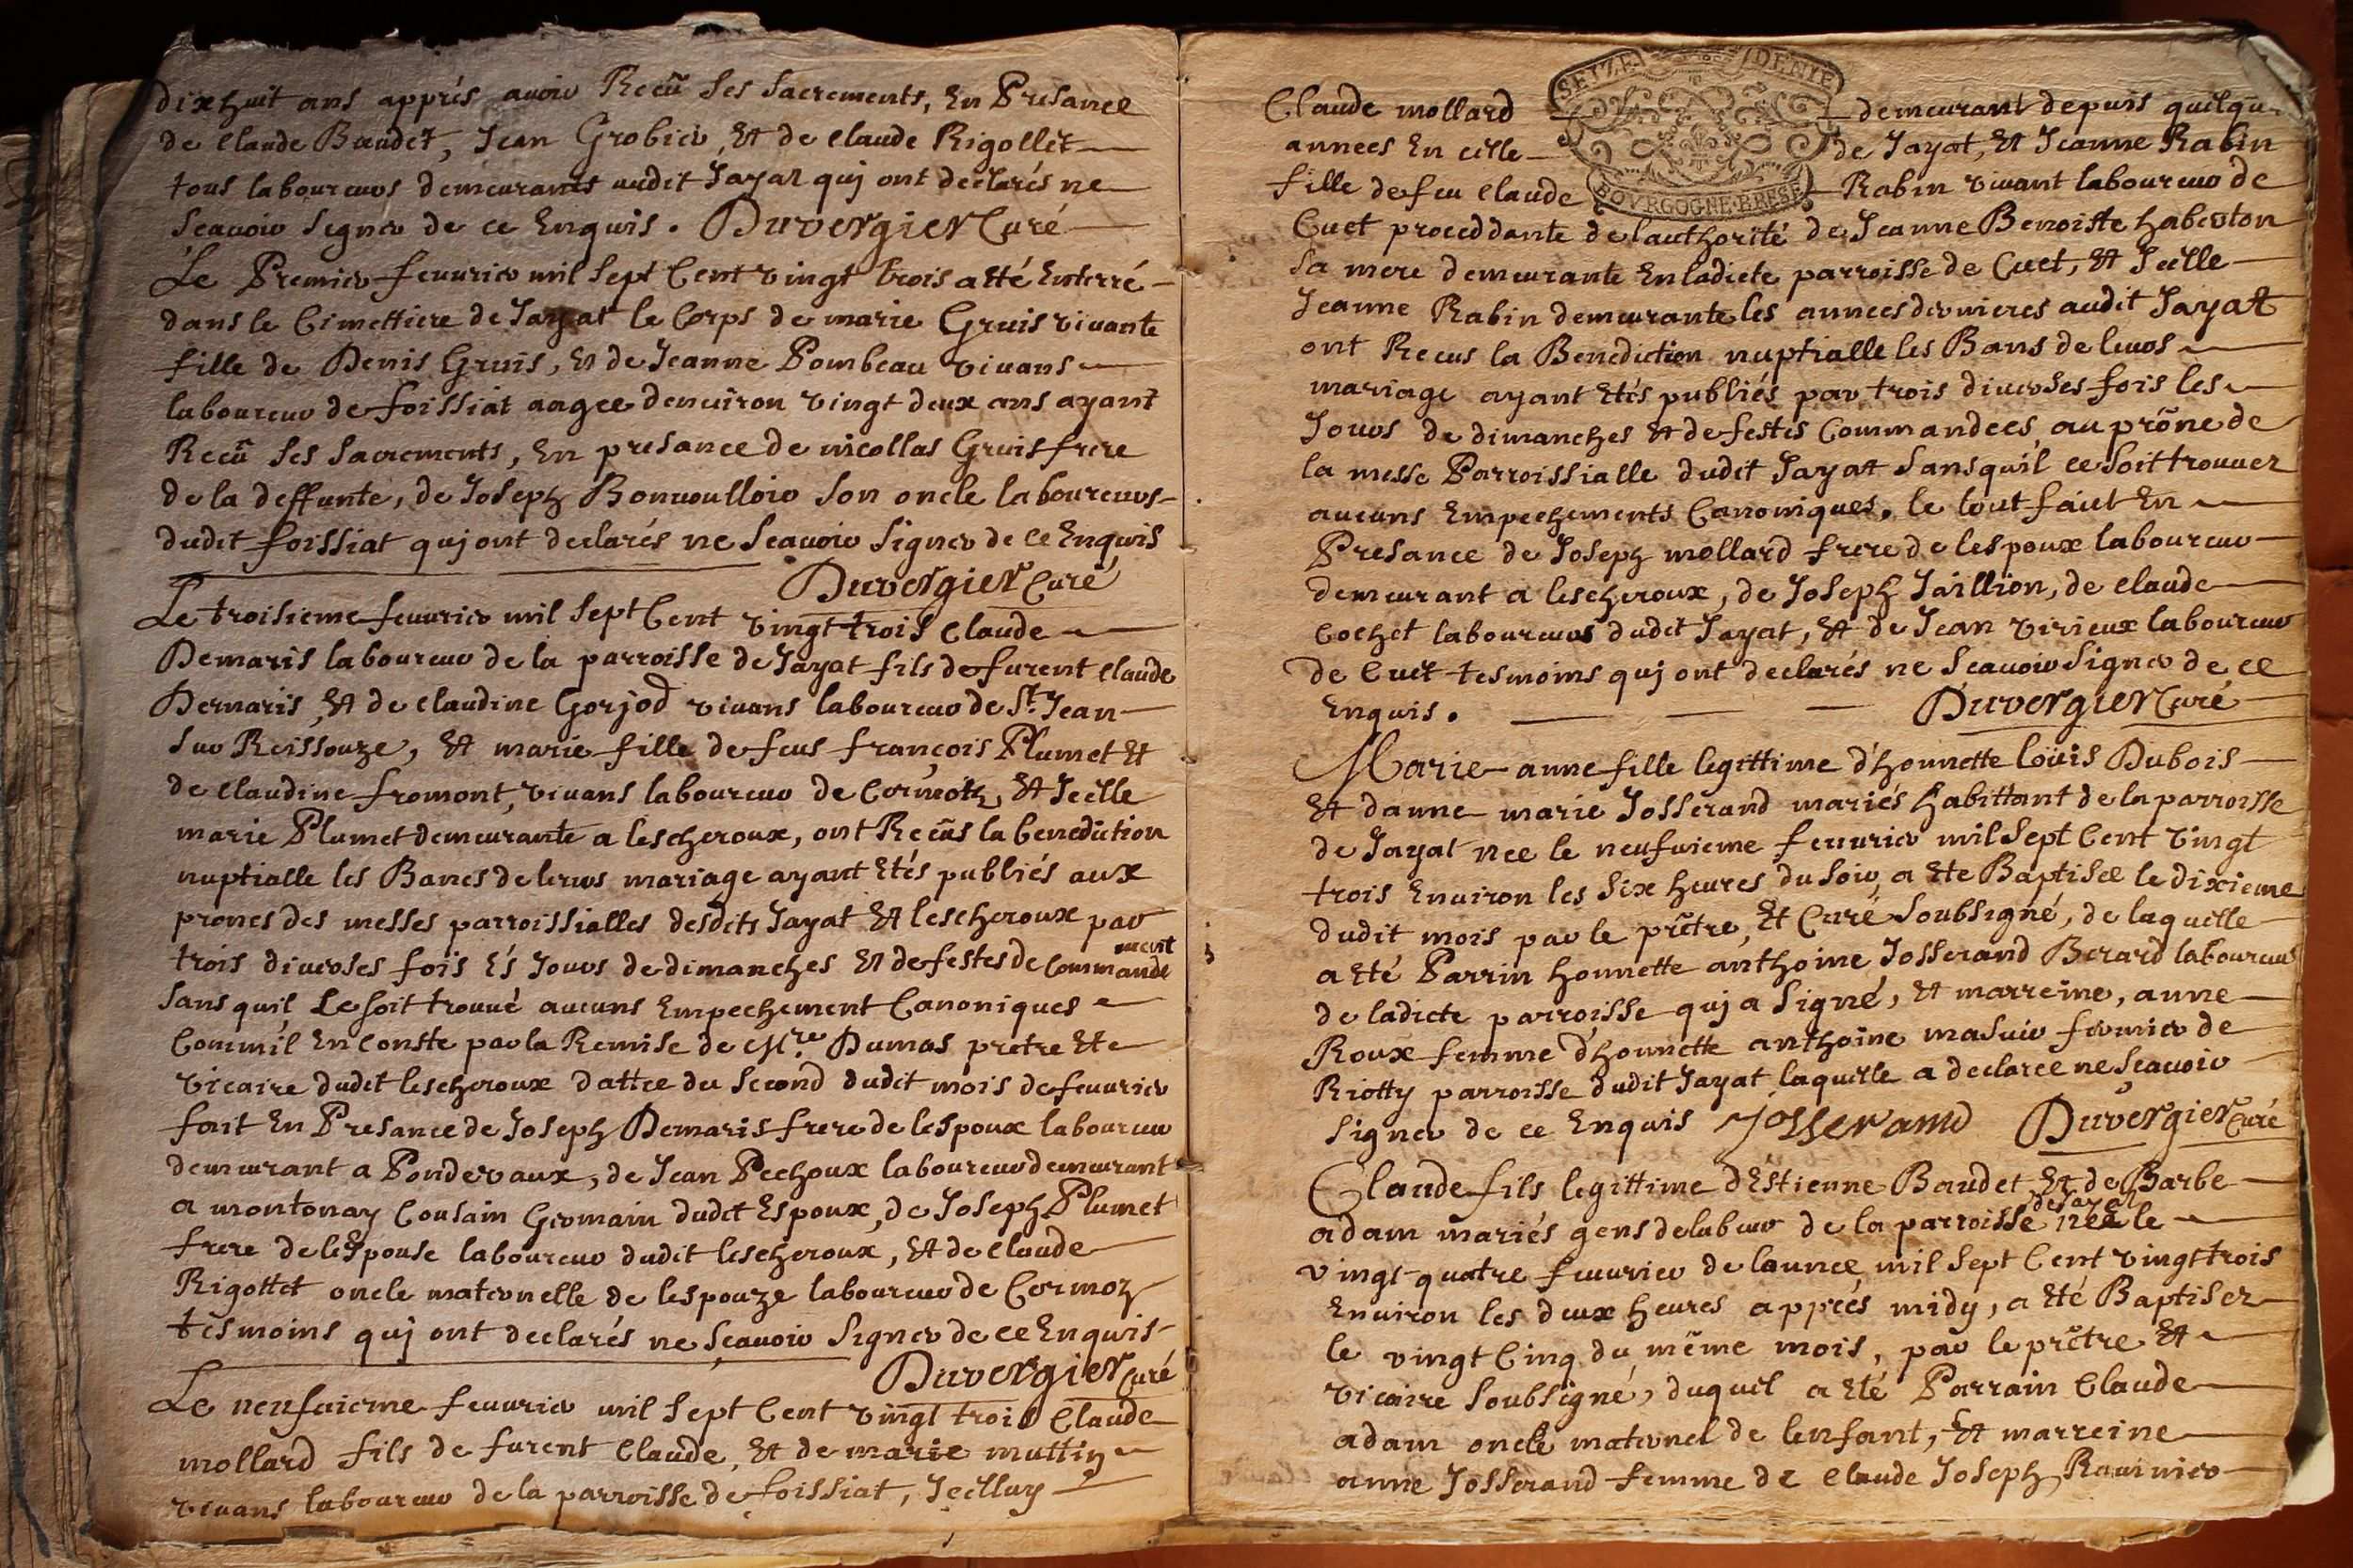 dixhuit ans appres avoir Recü ses sacrements, En Presance
de Claude Baudet, Jean Grobier, Et de Claude Rigollet
tous laboureurs demeurants audit Jayat quj ont declarés ne
scauoir signer de ce Enquis. Duvergier Curé
Le Premier feuurier mil sept Cent vingt trois a Eté Enterré
dans le Cimettiere de Jayat le Corps de marie Gruis viuante
fille de Denis Gruis, Et de Jeanne Pombeau viuans
laboureur de foissiat aagee denuiron vingt deux ans ayant
Recü ses sacrements, En presance de nicollas Gruis frere
de la deffunte, de Joseph Bonuoulloir son oncle laboureurs
dudit foissiat quj ont declarés ne scauoir signer de ce Enquis
Duvergier Curé
Le troisieme feuurier mil sept Cent vingt trois Claude
Demaris laboureur de la parroisse de Jayat fils de furent Claude
Demaris, Et de Claudine Gorjod viuans laboureur de St. Jean
sur Reissouze, Et marie fille de feus françois Plumet Et
de Claudine fromont, viuans laboureur de Cormoz, Et Jcelle
marie Plumet demeurante a lescheroux, ont Recüs la benediction
nuptialle les Bancs de leurs mariage ayant Etés publiés aux
prones des messes parroissialles desdits Jayat Et lescheroux par
trois diuerses fois És Jours de dimanches Et de festes de Commande
ment
sans quil se soit trouué aucuns Empechement Canoniques
Commil En Conste par la Remise de Mre. Dumas pretre Et
vicaire dudit lescheroux dattee du second dudit mois de feuurier
fait En Presance de Joseph Demaris frere de lespoux laboureur
demeurant a Pondevaux, de Jean Pechoux laboureur demeurant
a montonay Cousain Germain dudit Espoux, de Joseph Plumet
frere de lespouse laboureur dudit lescheroux, Et de Claude
Rigottet oncle maternelle de lespouze laboureur de Cormoz
tesmoins quj ont declarés ne scauoir signer de ce Enquis
Duvergier Curé
Le neufuieme feuurier mil sept Cent vingt trois Claude
mollard fils de furent Claude, Et de marie muttin
viuans laboureur de la parroisse de foissiat, Jcelluy
SEIZE DENIE
BOVRGOGNE·BRESE
Claude mollard demeurant depuis quelque
annees En celle de Jayat, Et Jeanne Rabin
fille de feu Claude Rabin viuant laboureur de
Cuet proceddante de lauthorité de Jeanne Benoiste haberton
sa mere demeurante En ladicte parroisse de Cuet, Et Jcelle
Jeanne Rabin demeurante les annees dernieres audit Jayat
ont Recus la Benediction nuptialle les Bans de leurs
mariage ayant Etés publiés par trois diuerses fois les
Jours de dimanches Et de festes Commandees au prône de
la messe Parroissialle dudit Jayat sans quil ce soit trouuer
aucuns Empechements Canoniques. le tout faict En
Presance de Joseph mollard frere de lespoux laboureur
demeurant a lescheroux, de Joseph Jaillion, de Claude
Cochet laboureurs dudit Jayat, Et de Jean virieux laboureur
de Cuet tesmoins quj ont declarés ne scauoir signer de ce
Enquis. Duvergier Curé
Marie-anne fille legittime d'honnette loüis Dubois
Et danne marie Josserand mariés habittant de la parroisse
de Jayat nee le neufuieme feuurier mil sept Cent vingt
trois Enuiron les six heures du soir, a Ete Baptisee le dixieme
dudit mois par le prêtre, Et Curé soubsigné, de laquelle
a Eté Parrin honnette anthoine Josserand Berard laboureur
de ladicte parroisse quj a signé, Et marreine, anne
Roux femme d'honnette anthoine masuir fermier de
Riotty parroisse dudit Jayat laquelle a declaree ne scauoir
signer de ce Enquis Josserand Duvergier Curé
Claude fils legittime d'Éstienne Baudet Et de Barbe
adam mariés gens de labeur de la parroisse de Jayat nee le
vingt-quatre feuurier de lannee mil sept Cent vingt trois
Enuiron les deux heures apprés midy, a Eté Baptiser
le vingt Cinq du même mois, par le prêtre Et
vicaire soubsigné, duquel a Eté Parrain Claude
adam oncle maternel de lenfant, Et marreine
anne Josserand femme de Claude Joseph